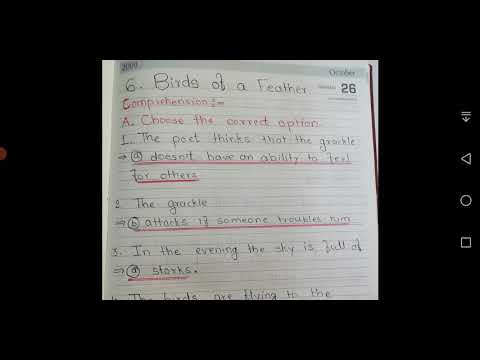 2009
October
26
6. Birds of a Feather
Comprehension:-
A. Choose the correct option
1. The poet thinks that the grackle
⇒ ⓐ doesn't have an ability to feel
for others
2. The grackle
⇒ ⓑ attacks if someone troubles him
3. In the evening the sky is full of
⇒ ⓐ storks.
4. The birds are flying to the